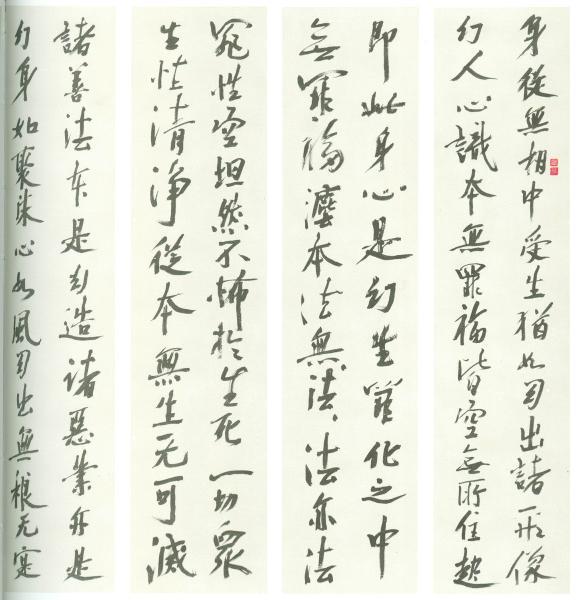 身從無相中受生猶如幻出諸形像
幻人心識本無罪福皆空無所住起
即此身心是幻生化之中
無罪福灋本法無法、法亦法
罪性空坦然不怖於生死一切眾
生性清淨從本無生无可滅
諸善法本是幻造諸惡業亦是
幻身如聚沫心如風幻出無根无實